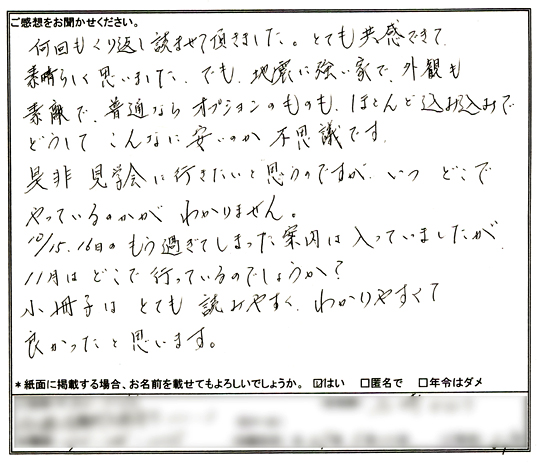 ご感想をお聞かせください。
何回もくり返し読ませて頂きました。とても共感できて
素晴らしく思いました。でも、地震に強い家で、外観も
素敵で、普通ならオプションのものも、ほとんど込み込みで
どうして こんなに安いのか 不思議です。
是非 見学会に行きたいと思うのですが、いつ どこで
やっているのかが わかりません。
10/15.16日の もう過ぎてしまった案内は入っていましたが
11月は どこで 行っているのでしょうか?
小冊子は とても 読みやすく、わかりやすくて
良かったと思います。
*紙面に掲載する場合、お名前を載せてもよろしいでしょうか。 ☑はい □匿名で □年令はダメ